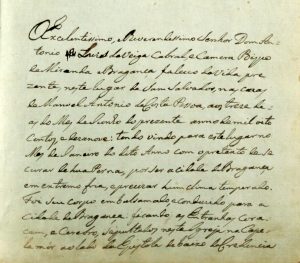 O Excelentissimo, e Reverendissimo Senhor Dom An-
tonio Luis da Veiga Cabral e Camera Bispo
de Miranda Bragança faleceo da vida pre
zente, neste lugar de San Salvador, na caza
de Manoel Antonio da Costa aos treze di-
as do Mez de Junho do prezente anno de mil oito
Centos, e dezanove: tendo vindo para este lugar no
Mez de Janeiro do dito Anno com o pretexto de se
curar de hua Perna, por ser a cidade de Bragança
em extremo fria, e precizar hum clima temperado.
Foi seu Corpo embalsamado, e conduzido para a
Cidade de Bragança: ficando as Entranhas, Cora
cam, e Cerebro, sepultados nesta Igreja na Cape
la mór, ao lado da Epistola debaixo da Credencia